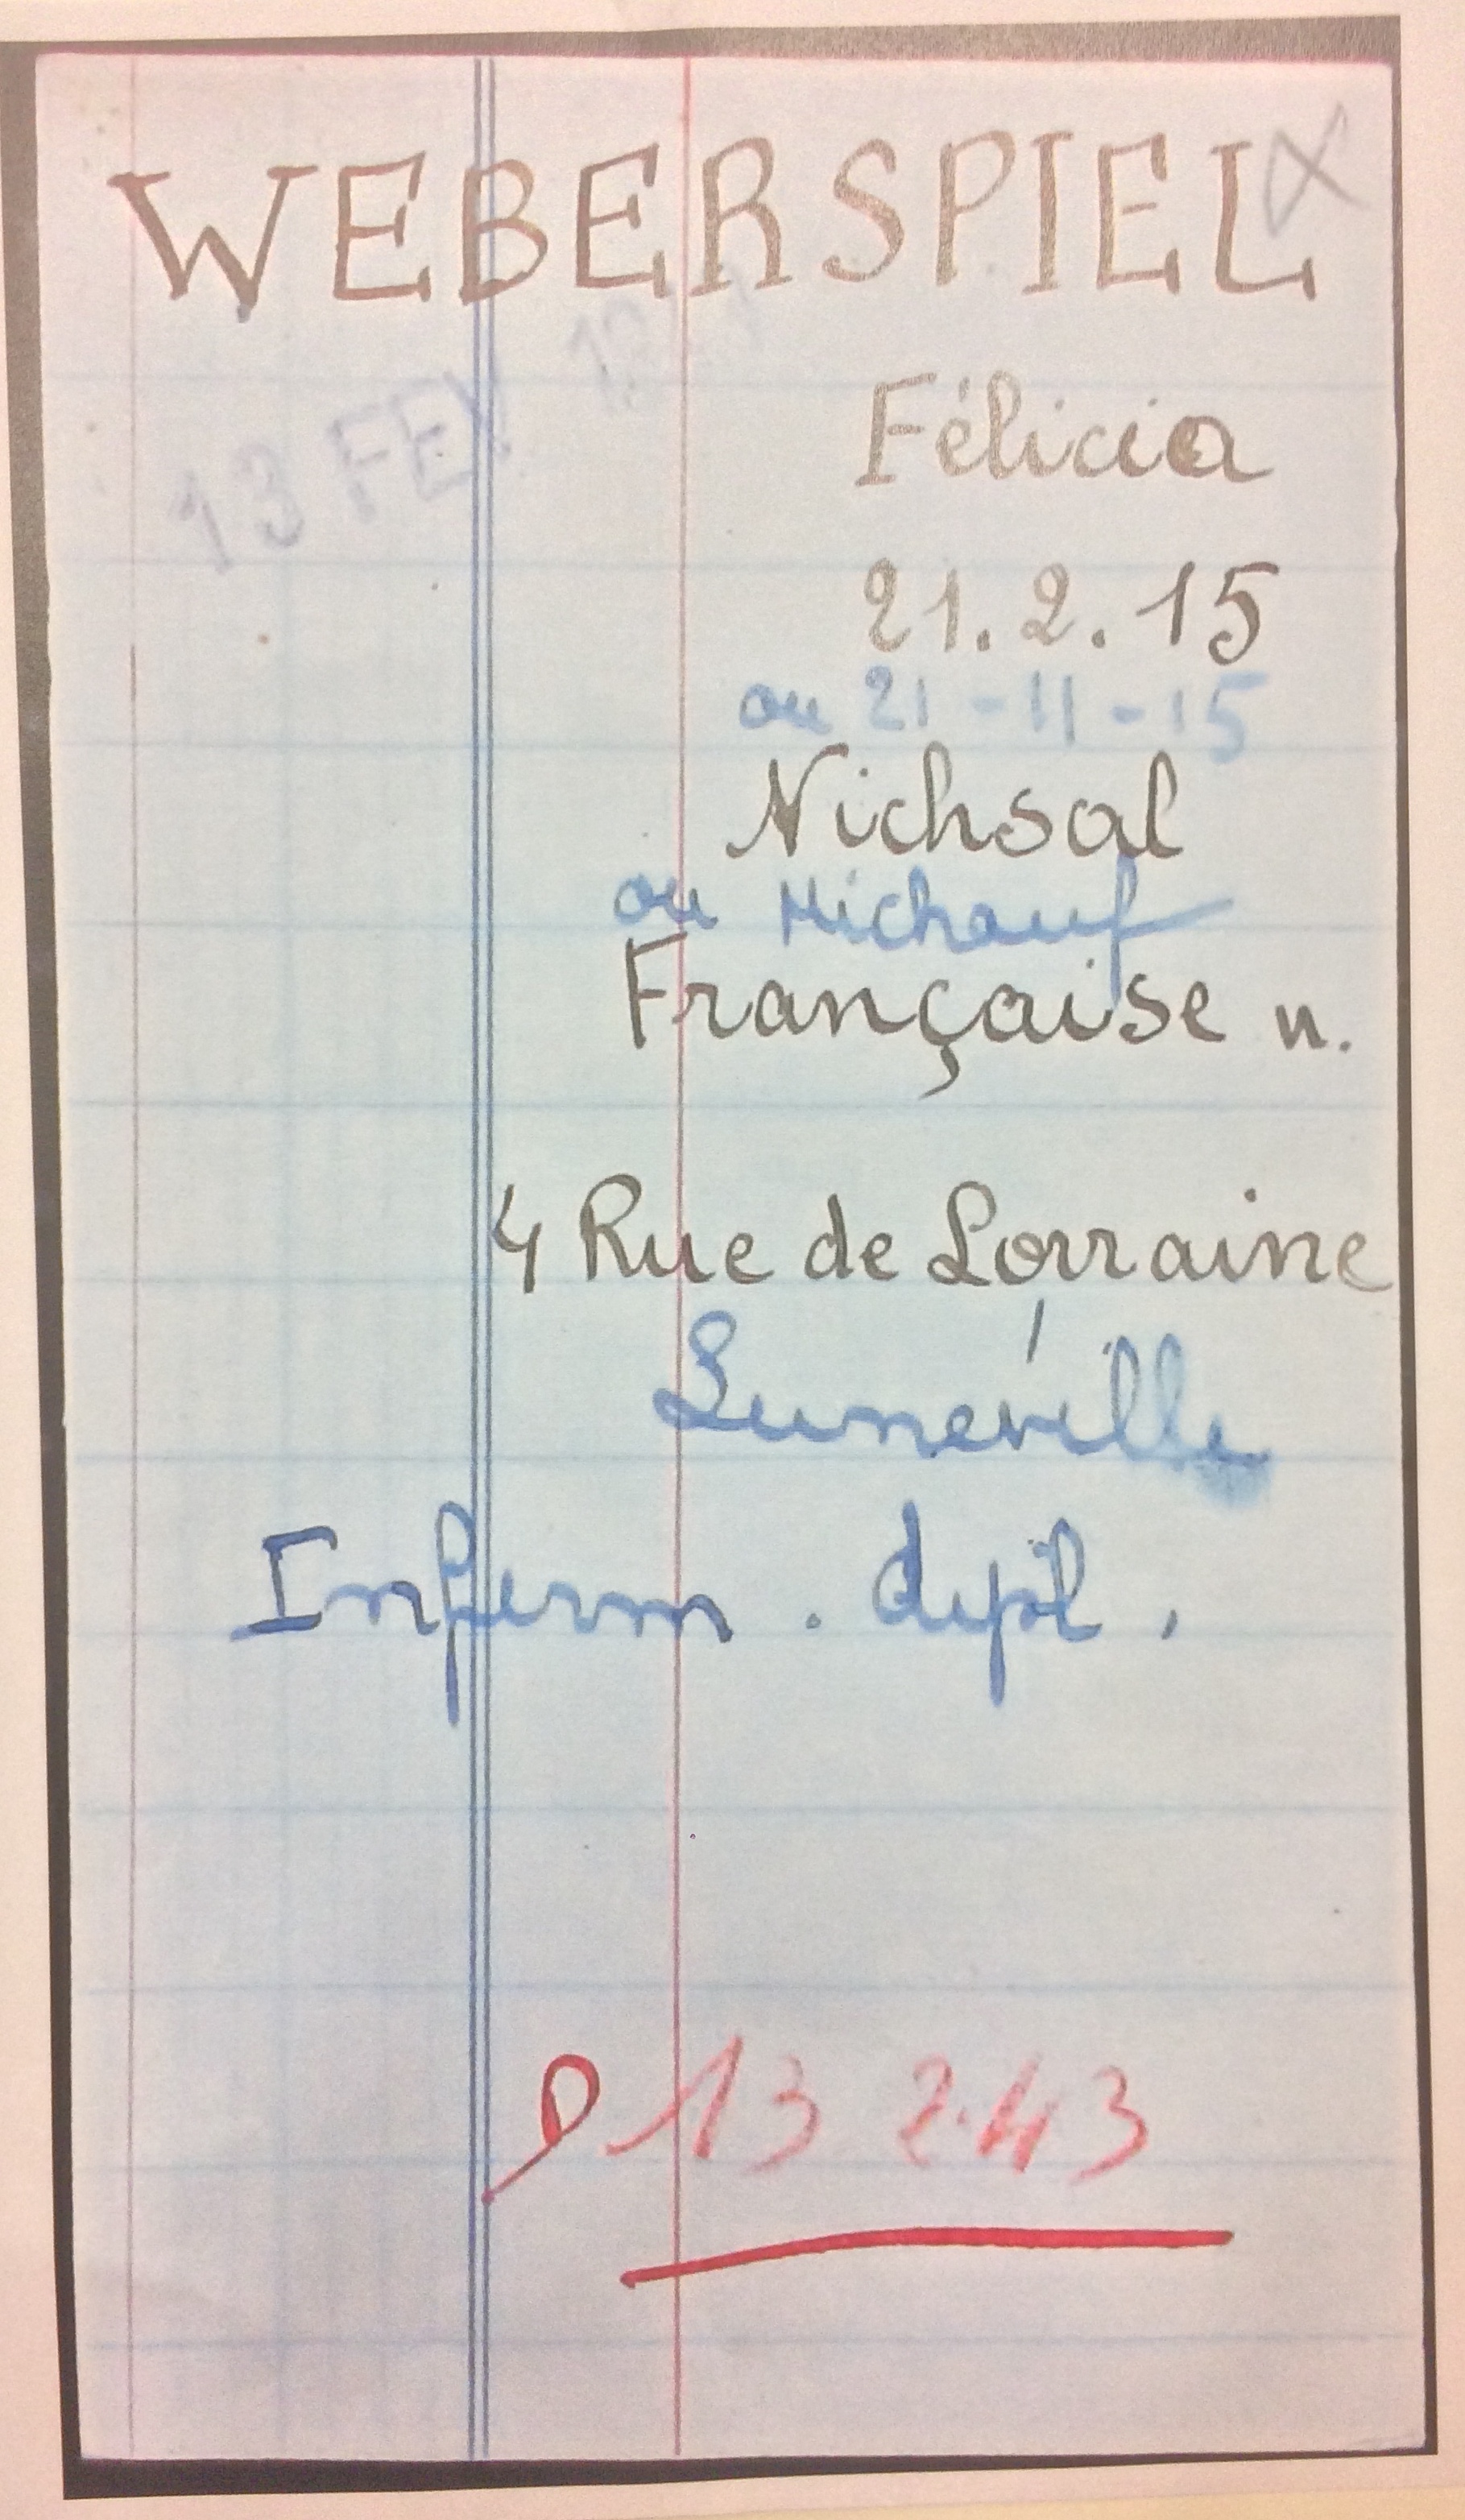 WEBERSPIEL
13 FEV
Félicia
21.2.15
ou 21-11-15
Nichsal
ou Michauf
Française n.
4 Rue de Lorraine
Luneville
Inferm. dipl.
13 2.43